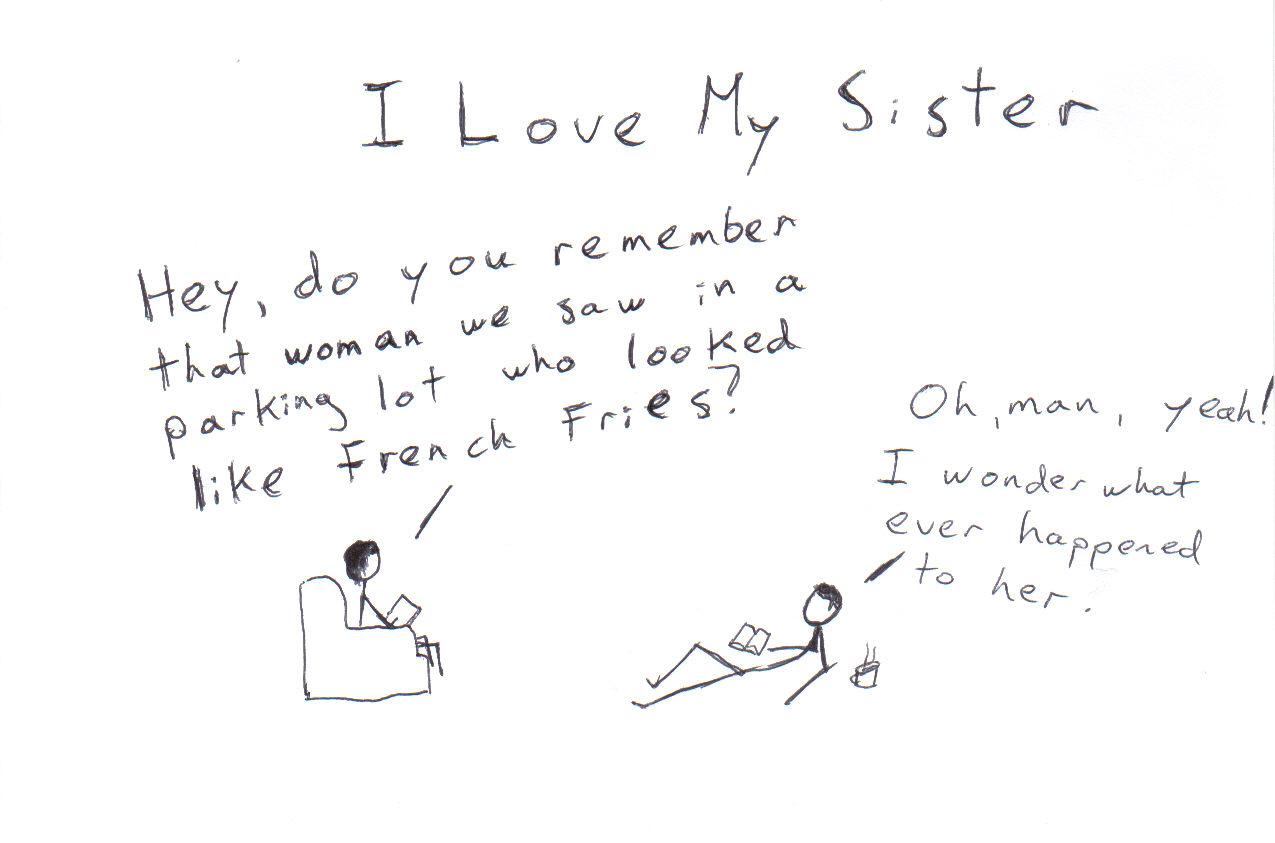 I Love My Sister
Hey, do you remember
that woman we saw in a
parking lot who looked
like French Fries?
Oh, man, yeah!
I wonder what
ever happened
to her.